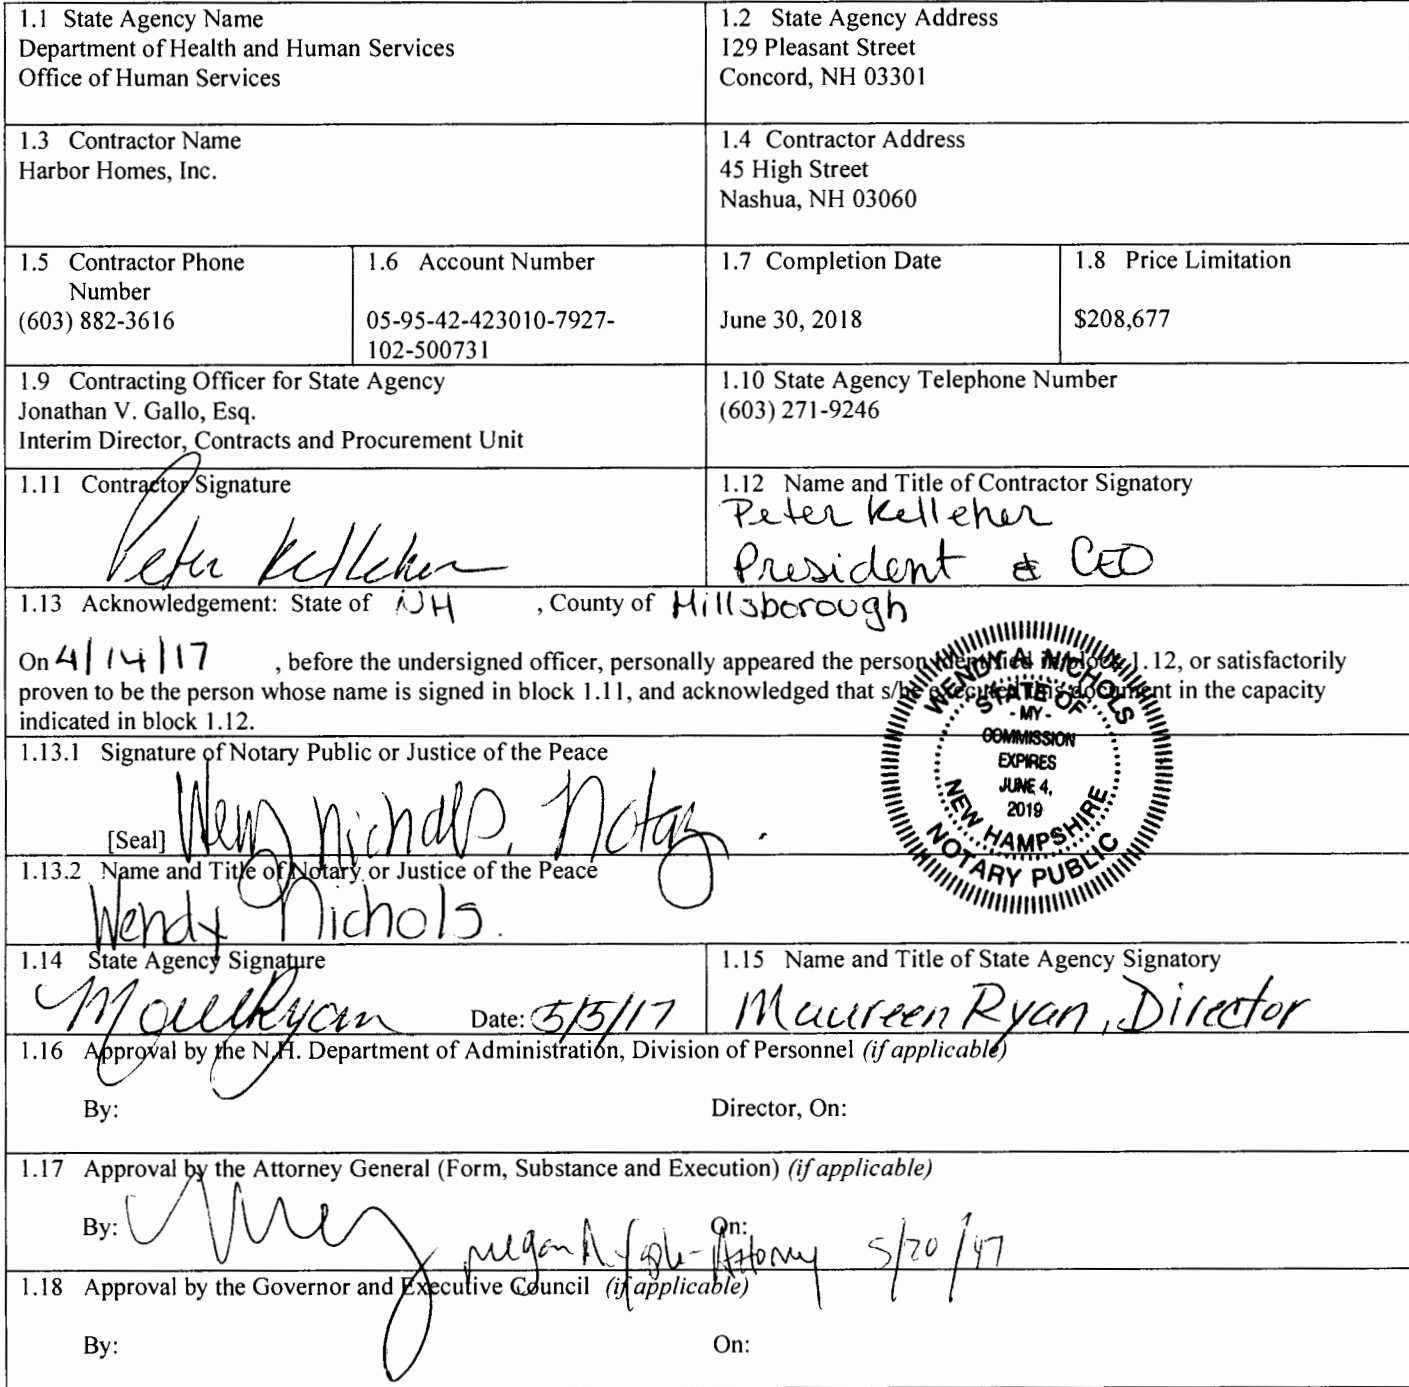 1.1 State Agency Name
Department of Health and Human Services
Office of Human Services
1.2 State Agency Address
129 Pleasant Street
Concord, NH 03301
1.3 Contractor Name
Harbor Homes, Inc.
1.4 Contractor Address
45 High Street
Nashua, NH 03060
1.5 Contractor Phone
Number
(603) 882-3616
1.6 Account Number
05-95-42-423010-7927-
102-500731
1.7 Completion Date
June 30, 2018
1.8 Price Limitation
$208,677
1.9 Contracting Officer for State Agency
Jonathan V. Gallo, Esq.
Interim Director, Contracts and Procurement Unit
1.10 State Agency Telephone Number
(603) 271-9246
1.11 Contractor Signature
Peter Kelleher
1.12 Name and Title of Contractor Signatory
Peter Kelleher
President & CEO
1.13 Acknowledgement: State of NH , County of Hillsborough
On 4/14/17 , before the undersigned officer, personally appeared the person identified in block 1.12, or satisfactorily
proven to be the person whose name is signed in block 1.11, and acknowledged that s/he executed this document in the capacity
indicated in block 1.12.
WENDY A. NICHOLS
STATE OF
- MY -
COMMISSION
EXPIRES
JUNE 4,
2019
NEW HAMPSHIRE
NOTARY PUBLIC
1.13.1 Signature of Notary Public or Justice of the Peace
[Seal] Wendy Nichols, Notary
1.13.2 Name and Title of Notary or Justice of the Peace
Wendy Nichols.
1.14 State Agency Signature
Date: 5/5/17
1.15 Name and Title of State Agency Signatory
Maureen Ryan, Director
1.16 Approval by the N.H. Department of Administration, Division of Personnel (if applicable)
By: Director, On:
1.17 Approval by the Attorney General (Form, Substance and Execution) (if applicable)
By: Megan A. - Attorney On: 5/20/17
1.18 Approval by the Governor and Executive Council (if applicable)
By: On: